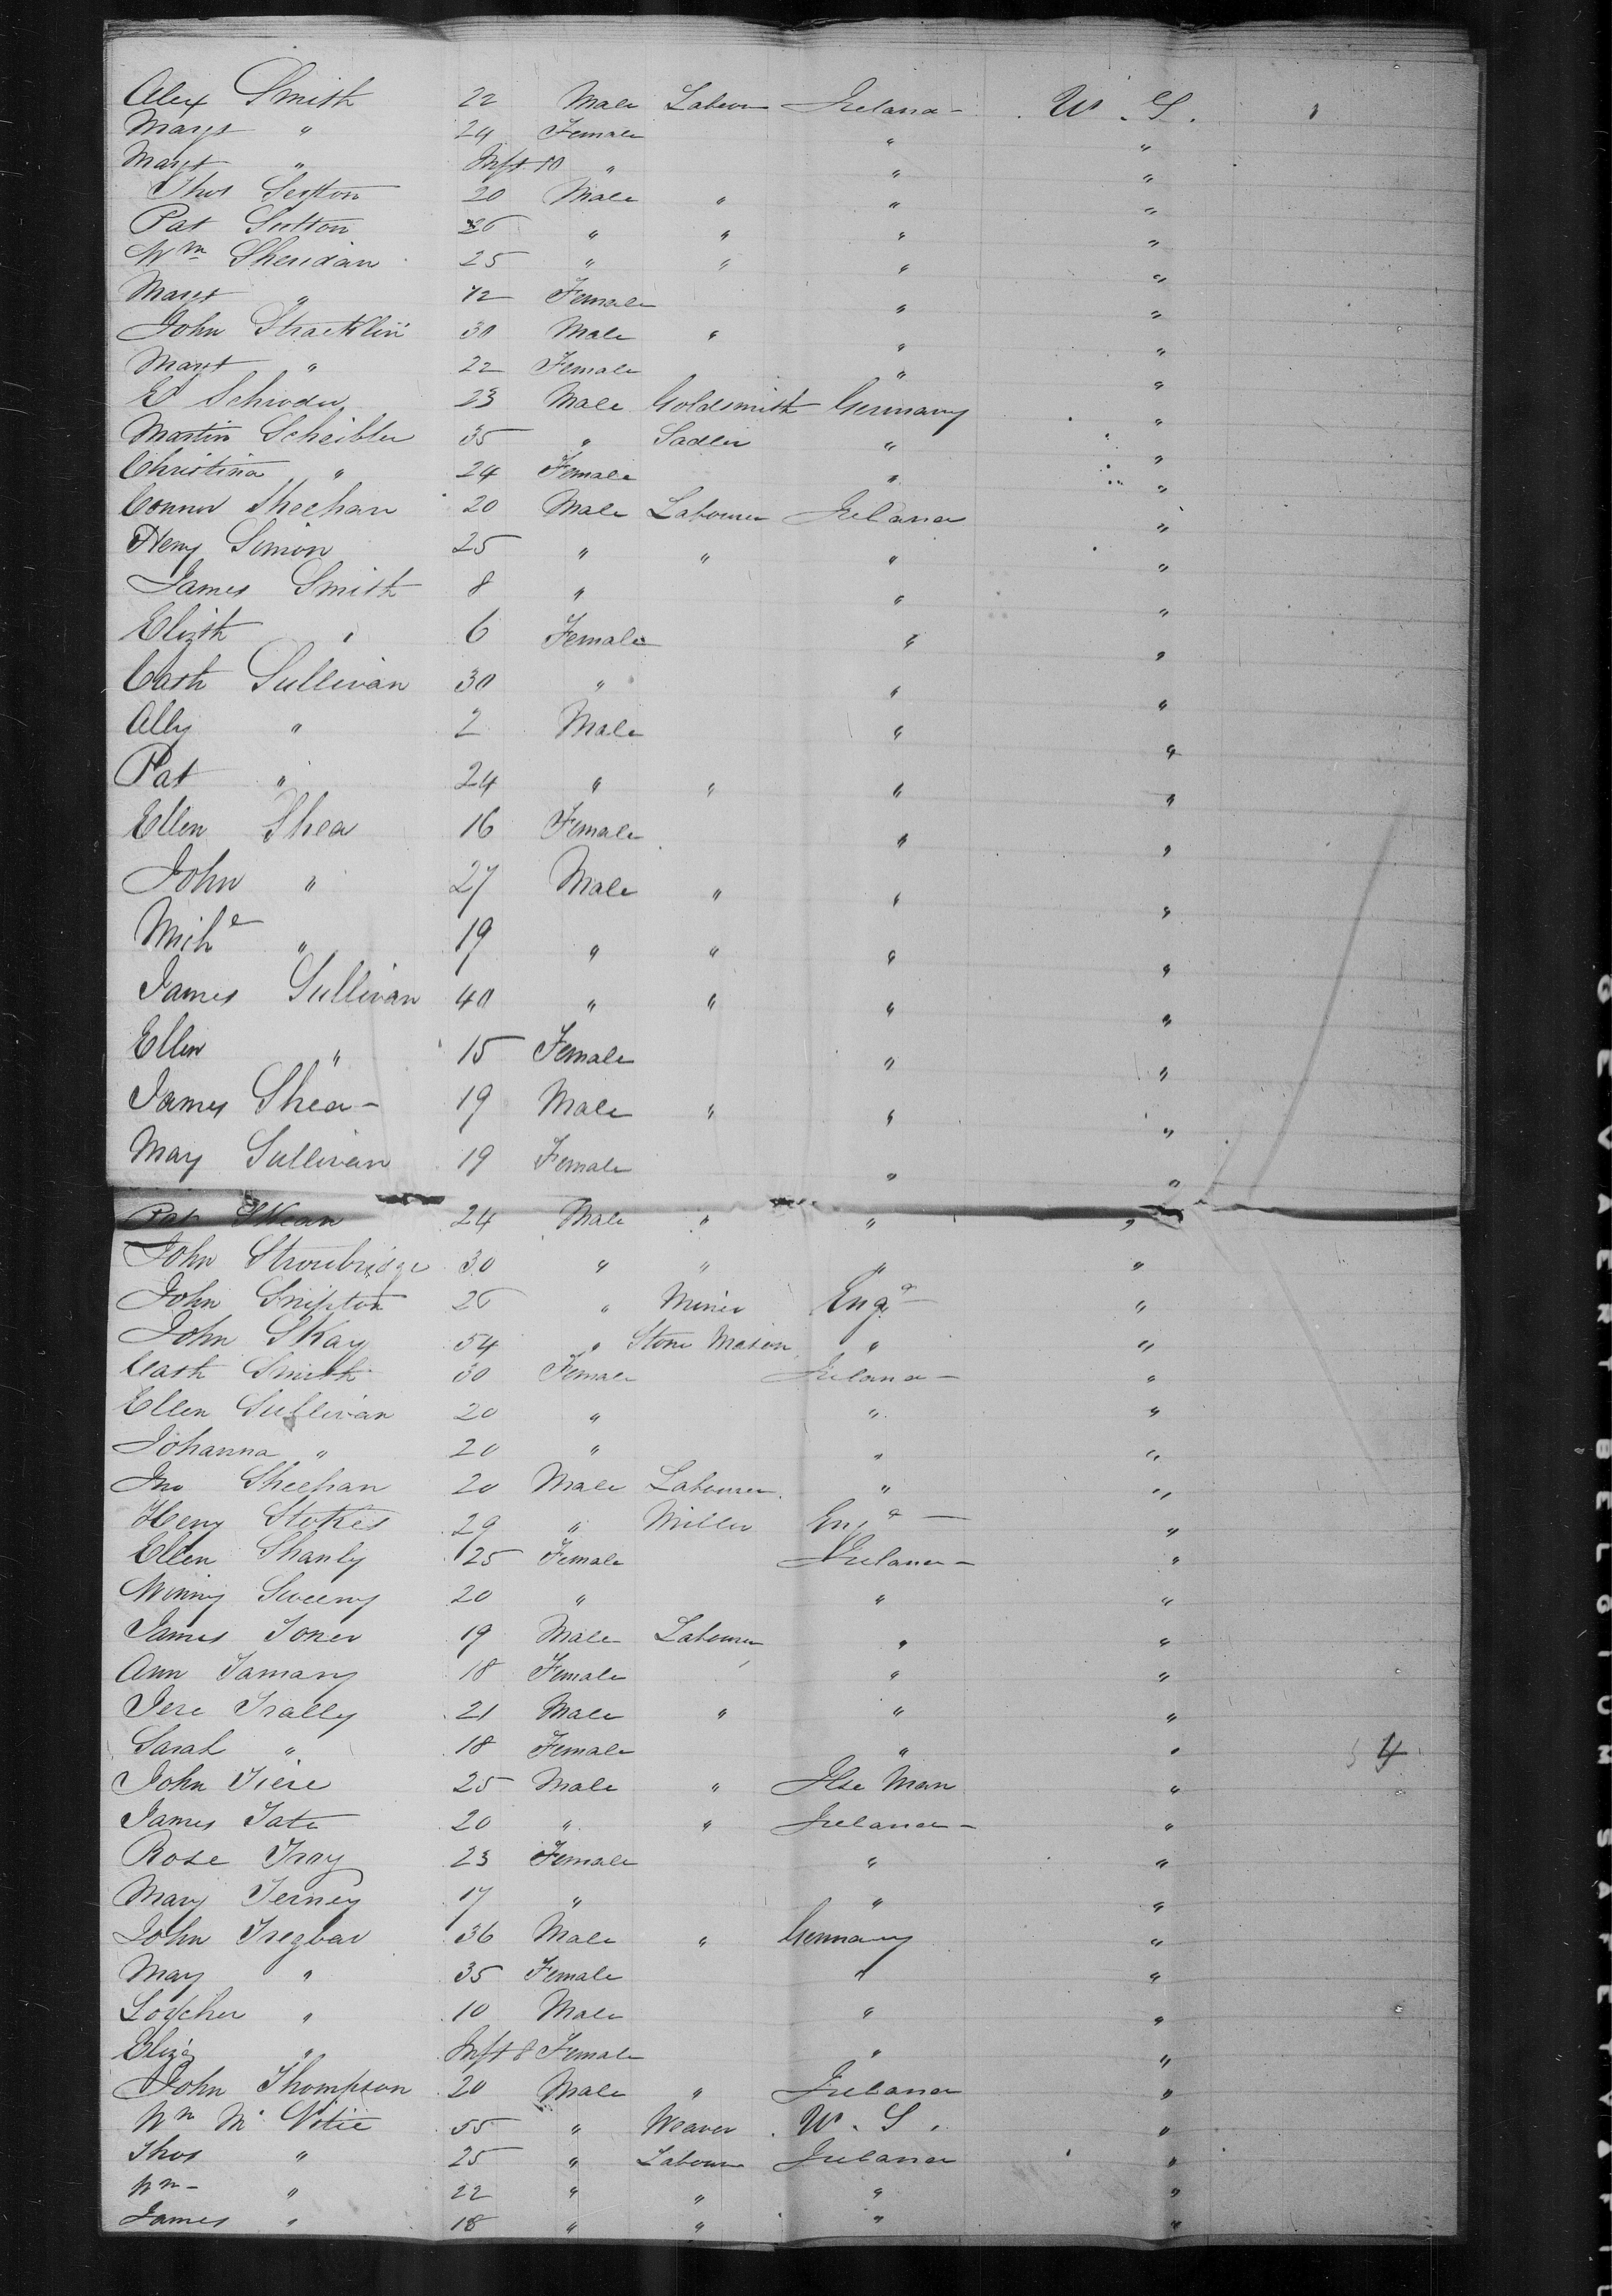 Alex Smith 22 Male Labour Ireland - W. S.
Margt " 24 Female " "
Margt " Inft 10 " " "
Thos Sexton 20 Male " " "
Pat Sutton 26 " " " "
Wm Sheridan 25 " " " "
Margt " 12 Female " "
John Stracklin 30 Male " " "
Margt " 22 Female " "
E Schroder 23 Male Goldsmith Germany "
Martin Scheibler 35 " Sadler " "
Christina " 24 Female " "
Connor Sheehan 20 Male Labourer Ireland "
Heny Simon 25 " " " "
James Smith 8 " " "
Elizth " 6 Female " "
Cath Sullivan 30 " " "
Ally " 2 Male " "
Pat " 24 " " " "
Ellen Shea 16 Female " "
John " 27 Male " " "
Michl " 19 " " " "
James Sullivan 40 " " " "
Ellen " 15 Female " "
James Shea - 19 Male " " "
Mary Sullivan 19 Female " "
Pat Skean 24 Male " " "
John Stroubridge 30 " " " "
John Snipton 26 " Miner Engd "
John Skay 54 " Stone Mason " "
Cath Smith 30 Female Ireland - "
Ellen Sullivan 20 " " "
Johanna " 20 " " "
Jno Sheehan 20 Male Labourer " "
Heny Stokes 29 " Miller Engd - "
Ellen Shanly 25 Female Ireland - "
Winny Sweeny 20 " " "
James Toner 19 Male Labourer " "
Ann Tamany 18 Female " "
Jere Trally 21 Male " " "
Sarah " 18 Female " " 4
John Tiere 25 Male " Ilse Man "
James Tate 20 " " Ireland - "
Rose Tray 23 Female " "
Mary Terney 17 " " "
John Tregbar 36 Male " Germany "
May " 35 Female " "
" 10 Male " "
Eliza " Inft 8 Female " "
John Thompson 20 Male " Ireland "
Wm Mc Vitie 55 " Weaver W. S. "
Thos " 25 " Labour Ireland "
Wm - " 22 " " " "
James " 18 " " " "
GEVAERT BELGIUM SAFETY